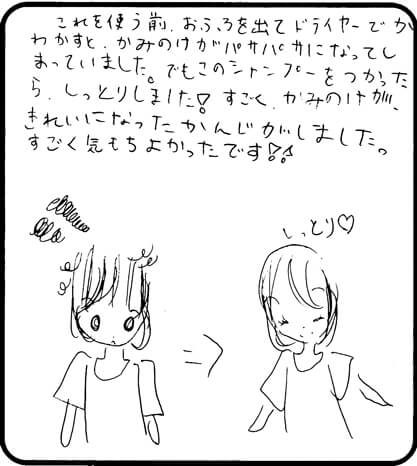 これを使う前、おふろを出てドライヤーでか
わかすと、かみのけがパサパサになってし
まっていました。でもこのシャンプーをつかった
ら、しっとりしました!すごく、かみのけが、
きれいになったかんじがしました。
すごく気もちよかったです!!
しっとり♡